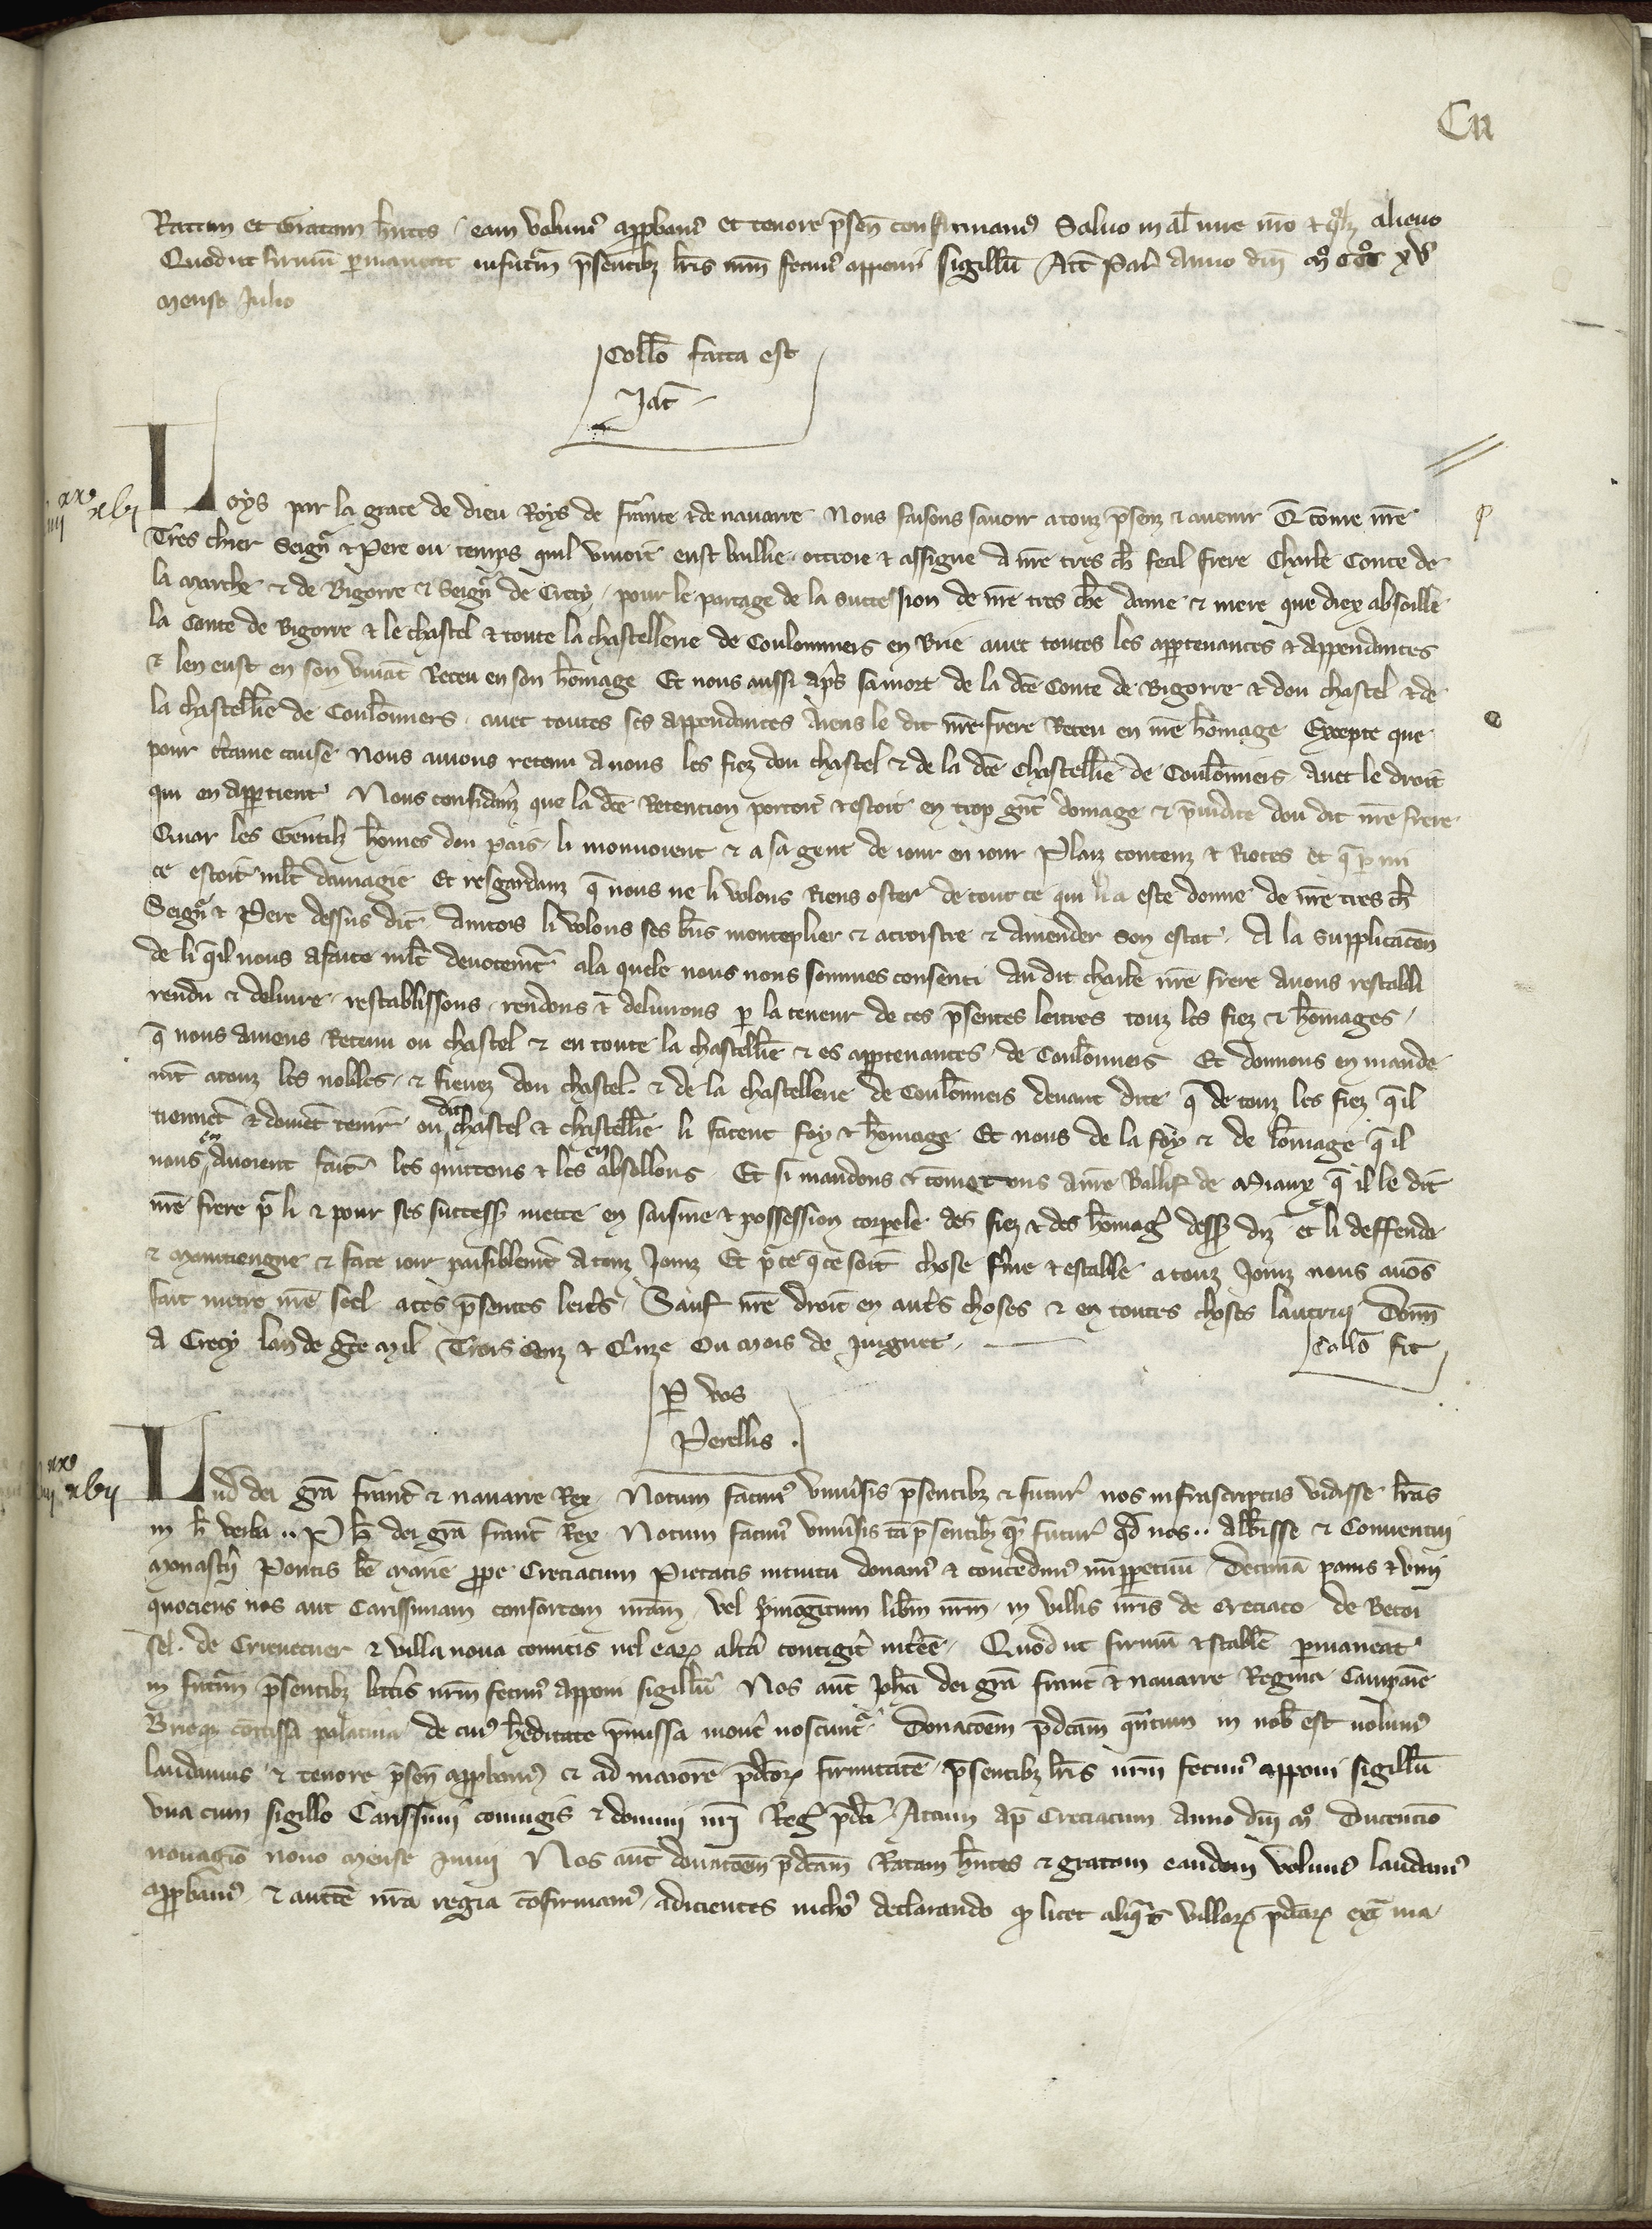 Cii
Ratam et Gratam h̄ntes, eam volum⁹ app̄bam⁹ et tenore p̄sen̄ confirmam⁹ Salvo in al̄ iure nr̄o et q°lz alieno
Quod ut firmū p̄maneat infutur̄ p̄sentibz lr̄is nr̄m fecim⁹ apponi sigillū Act̄ Par̄ Anno dn̄i m° ccc° xv°
mense Julio
Coll̄o facta est
Jac̄
Loys par la grace de dieu Roys de fr̄ance et de navarre Nous faisons savoir a touz p̄senz et avenir Q̄ cōme nr̄e
Tres chier Seign̄r et Pere ou temps quil vivoit eust baillie, ottroie et assigne A nr̄e tres ch̄ feal frere Charle Conte de
la marche et de Bigorre et Seign̄r de Crecy, pour le partage de la succession de nr̄e tres ch̄e dame et mere que diex absoille
la Conte de Bigorre et le chastel et toute la chastellerie de Coulommers en Brie avec toutes les app̄tenances et appendances
et len eust en son vivāt Receu en son hōmage Et nous aussi ap̄s sa mort de la dc̄e Conte de Bigorre et dou chastel et de
la chastell̄ie de Coulōmers, avec toutes ses appendances Aiens le dit nr̄e frere Receu en nr̄e hōmage Excepte que
pour c̄taine cause Nous avions retenu A nous les fiez dou chastel et de la dc̄e Chastell̄ie de Coulōmers Avec le droit
qui en app̄tient Nous consid̄am̄ que la dc̄e Retencion portoit et estoit en trop gn̄t domage et p̄iudice dou dit nr̄e frere
Quar les Gentilz hōmes dou pais, li mouvoient et a sa gent de iour en iour Plaiz contenz et Riotes et q̄ p̄ mi
ce estoit ml̄t damagie Et resgardanz q̄ nous ne li volons Riens oster de tout ce qui li a este donne de nr̄e tres ch̄
Seign̄r et Pere dessus dit Ancois li volons ses biens monteplier et accroistre et Amender son estat, A la supplicacōn
de li q̄il nous a faite ml̄t devotem̄t a la quele nous nous sommes consenti Au dit charle nr̄e frere Avons restabli
rendu et delivre, restablissons, rendons et delivrons p̄ la teneur de ces p̄sentes lettres touz les fiez et hōmages,
q̄ nous Aviens Retenu ou chastel et en toute la chastell̄ie et es app̄tenances, de Coulōmers Et donnons en mande
m̄t a touz les nobles, et fievez dou chastel, et de la chastellerie de Coulōmers devant dite q̄ de touz les fiez q̄il
tienn̄t et doivēt tenir ou dit chastel et chastell̄ie li facent foy et hōmage Et nous de la foy et de lōmage q̄ il
nous en Avoient fait les quittons et les en absollons, Et si mandons et cōmettons a nr̄e Ballif de Miaux q̄ il le dit
nr̄e frere p̄ li et pour ses success̄ mette en saisine et possession corpele des fiez et des hōmaḡ dess̄ diz et li deffende
et maintiengne et face ioir paisiblem̄t A touz Jourz Et p̄ ce q̄ ce soit chose f̄me et estable a touz Jourz nous avōs
fait metre nr̄e seel a ces p̄sentes lett̄s, Sauf nr̄e droit en aut̄s choses et en toutes choses lautrui Donn̄
A Crecy lan de ḡce mil Trois cenz et Quize Ou mois de Juignet,
Collō fit
P̄ vos
Perellis.
Lud̄ dei gr̄a franc̄ et navarre Rex, Notum facim⁹ univ̄sis p̄sentibz et futur̄ nos infrascriptas vidisse lr̄as
in h̄ verba.. Ph̄ dei gr̄a franc̄ Rex, Notum facim⁹ univ̄sis tā p̄sentibz q̄ futur̄ qd̄ nos.. Abb̄isse et Conventui
monast̄ii Pontis b̄e marie p̄pe Creciacum Pietatis intuitu donam⁹ et concedim⁹ imp̄petuū Decimā panis et vini
quociens nos aut Carissimam consortem nr̄am, vel p̄mogēitum lib̄m nr̄m, in villis nr̄is de Creciaco, de Becoi
sel, de Crievecuer et villa nova comitis vel earz alt̄a contigit̄ int̄ee, Quod ut firmū et stabile p̄maneat
in futur̄ p̄sentibz litt̄is nr̄m fecim⁹ apponi sigillū Nos aut̄ Joh̄a dei gr̄a franc̄ et navarre Regina Campanie
Brieqz comitissa palatina de cui⁹ h̄editate p̄missa mov̄i noscunt̄ Donacōem p̄dc̄am q̄ntum in nob̄ est volum⁹
laudamus et tenore p̄sen̄ app̄bam⁹ et ad maiorē p̄dc̄orz firmitatē p̄sentibz lr̄is nr̄m fecim⁹ apponi sigillū
una cum sigillo Carissimi coniugis et domini nr̄i Reḡ p̄dc̄i, Actum ap̄ Creciacum Anno dn̄i m° Ducenō
nonagō nono mense Junii Nos aut̄ donacōem p̄dc̄am Ratam h̄ntes et gratam eandem volum⁹ laudam⁹
app̄bam⁹ et auct̄e nr̄a regia cōfirmam⁹, adicientes nicho⁹ declarando q° licet aliq̄s villarz p̄dc̄arz ext̄ ma